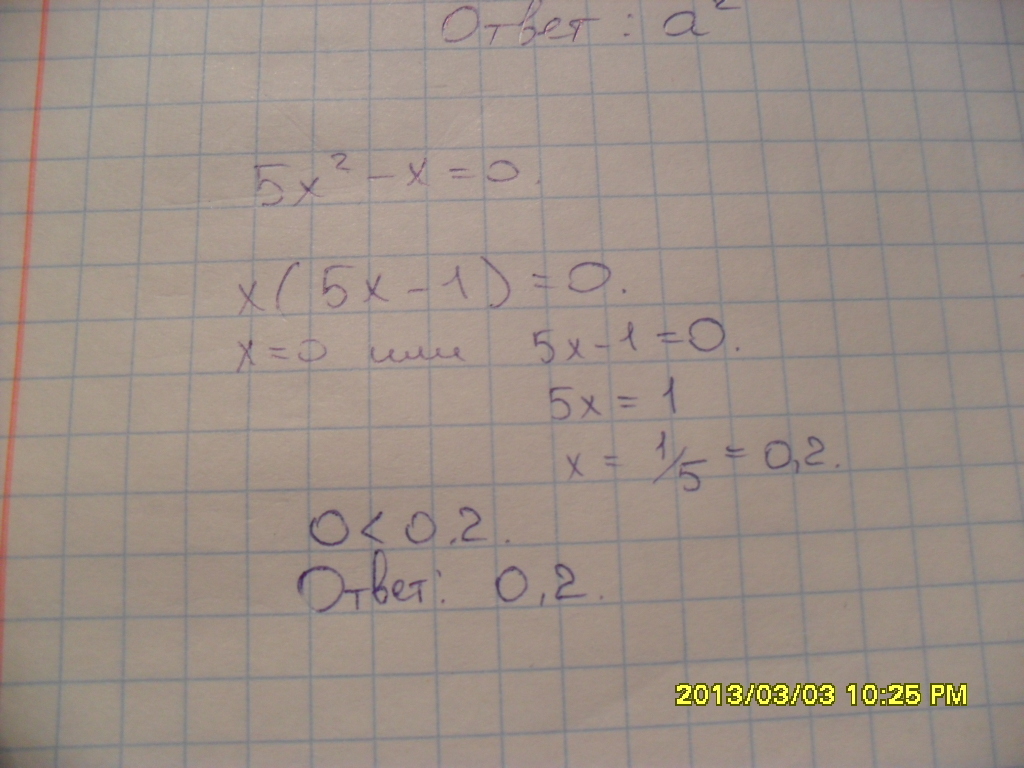 Ответ: a²
5x² - x = 0.
x(5x - 1) = 0.
x = 0 или 5x - 1 = 0.
5x = 1
x = 1/5 = 0,2.
0 < 0,2.
Ответ: 0,2.
2013/03/03 10:25 PM